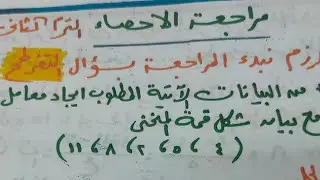 مراجعة الاحصاء الترم الثانى
لازم نبدء المراجعة بسؤال التفرطح
من البيانات الآتية المطلوب ايجاد معامل
مع بيان شكل قمة المنحنى
( ٤ ، ٥ ، ٢ ، ٨ ، ١١ )